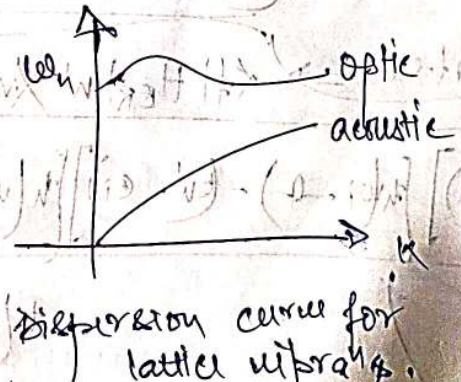 ωₙ
optic
acoustic
k
Dispersion curve for
lattice vibraⁿs.